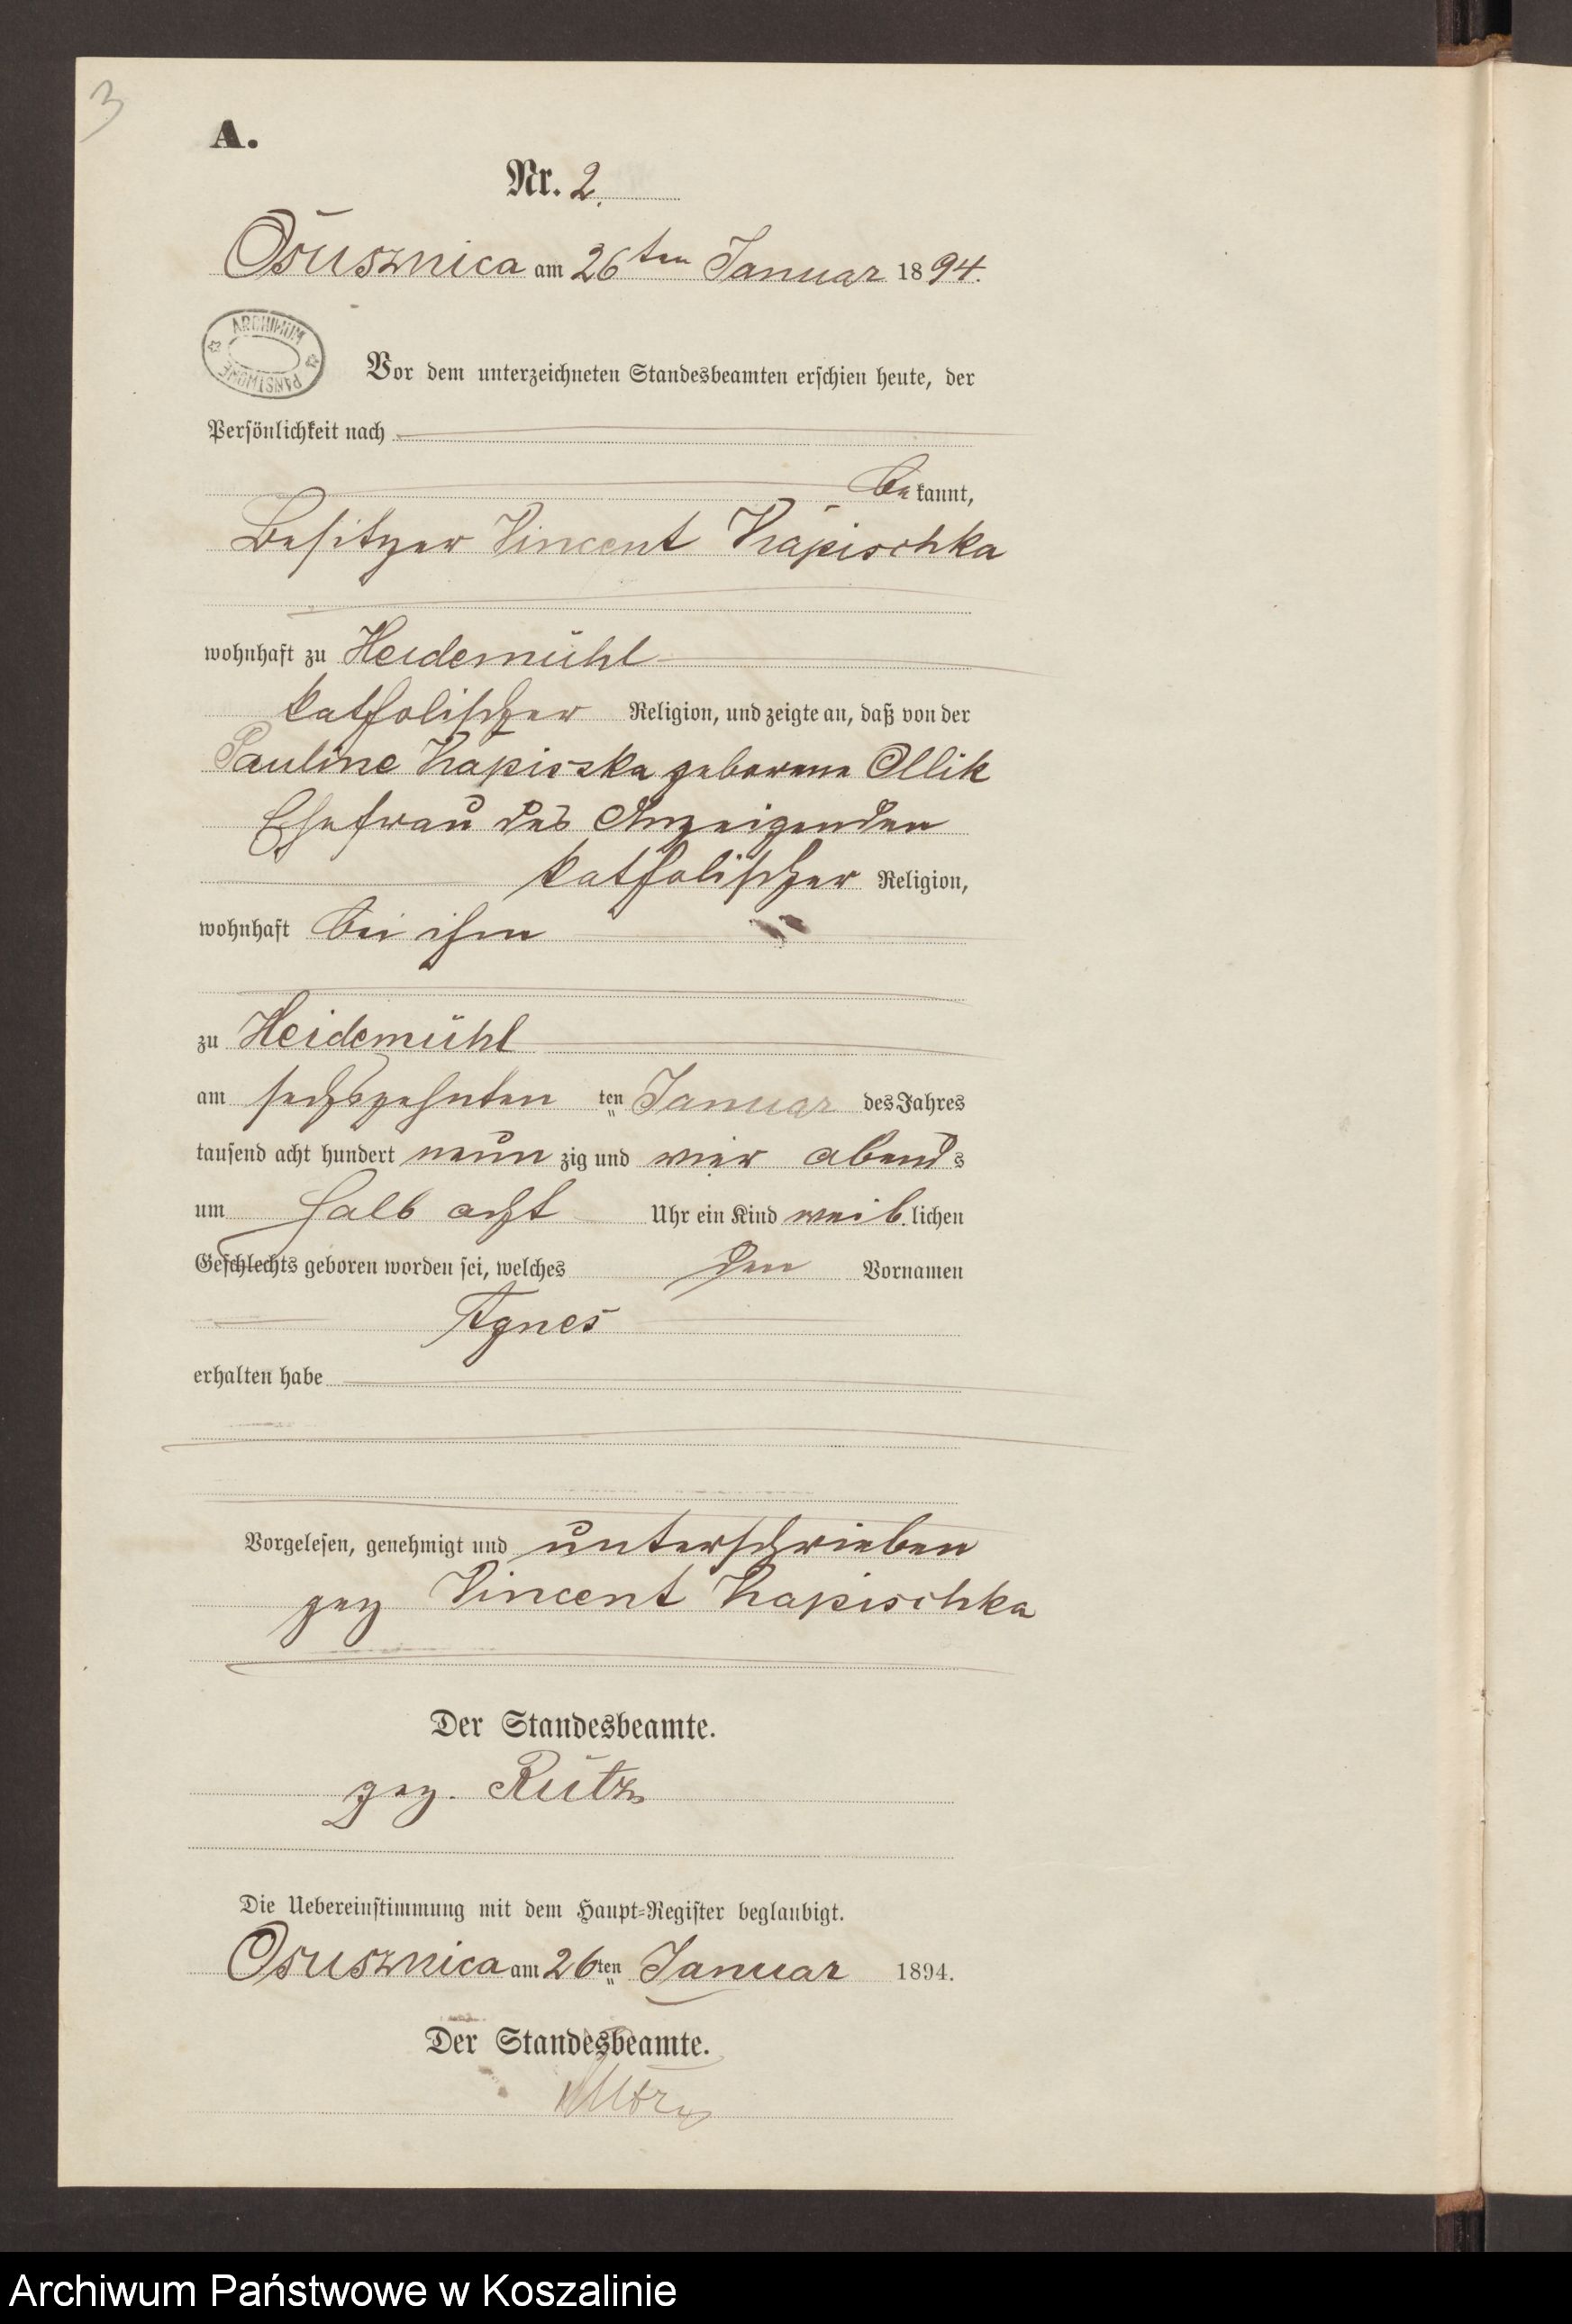 3
A.
Nr. 2.
Osusznica am 26ten Januar 1894.
ARCHIWUM PAŃSTWOWE
Vor dem unterzeichneten Standesbeamten erschien heute, der
Persönlichkeit nach
bekannt,
Besitzer Vincent Kapischka
wohnhaft zu Heidemühl
katholischer Religion, und zeigte an, daß von der
Pauline Kapiszka geborene Ollik
Ehefrau des Anzeigenden
katholischer Religion,
wohnhaft bei ihm
zu Heidemühl
am sechszehnten ten Januar des Jahres
tausend acht hundert neun zig und vier abends
um halb acht Uhr ein Kind weib.lichen
Geschlechts geboren worden sei, welches den Vornamen
Agnes
erhalten habe
Vorgelesen, genehmigt und unterschrieben
gez Vincent Kapischka
Der Standesbeamte.
gez. Rütz
Die Uebereinstimmung mit dem Haupt-Register beglaubigt.
Osusznica am 26ten Januar 1894.
Der Standesbeamte.
Rütz
Archiwum Państwowe w Koszalinie